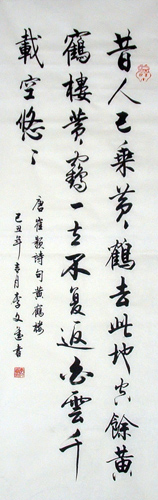 昔人已乘黃鶴去此地空餘黃
鶴樓黃鶴一去不復返白雲千
載空悠〻
唐崔顥詩句黃鶴樓
己丑年春月李文書